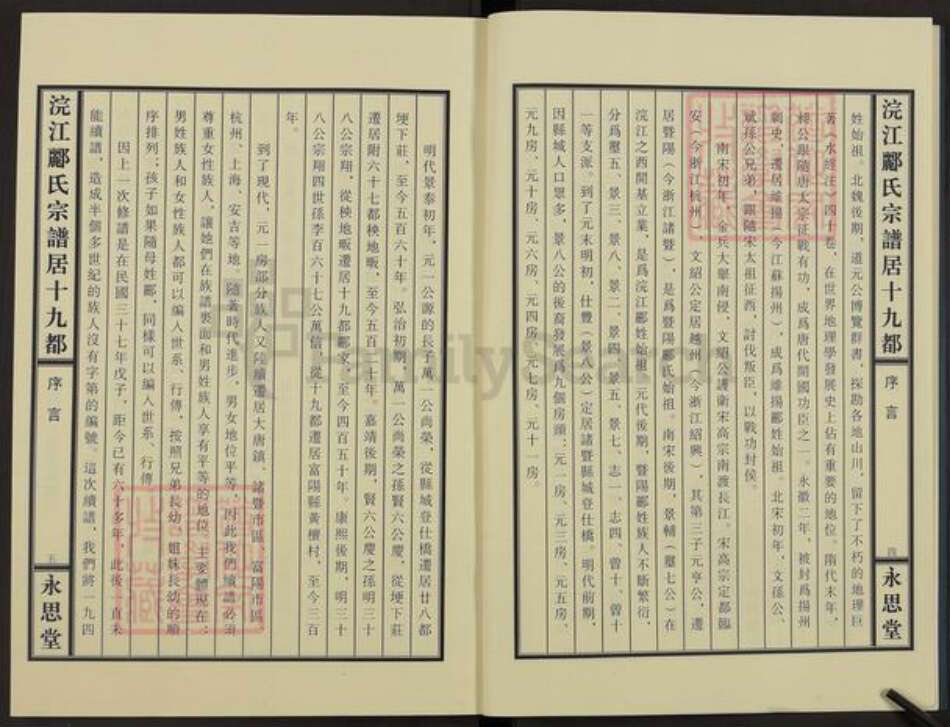 浣江酈氏宗譜居十九都
序言
四
永思堂
姓始祖。北魏後期，道元公博覽群書，探勘各地山川，留下了不朽的地理巨
著《水經注》四十卷，在世界地理學發展史上佔有重要的地位。隋代末年，
昶公跟隨唐太宗征戰有功，成爲唐代開國功臣之一。永徽二年，被封爲揚州
刺史，遷居維揚（今江蘇揚州），成爲維揚酈姓始祖。北宋初年，文孫公、
斌孫公兄弟，跟隨宋太祖征西，討伐叛臣，以戰功封侯。
南宋初年，金兵大舉南侵，文紹公護衛宋高宗南渡長江。宋高宗定都臨
安（今浙江杭州），文紹公定居越州（今浙江紹興），其第三子元亨公，遷
居暨陽（今浙江諸暨），是爲暨陽酈氏始祖。南宋後期，景輔（壓七公）在
浣江之西開基立業，是爲浣江酈姓始祖。元代後期，暨陽酈姓族人不斷繁衍，
分爲壓五、景三、景八、景二、景四、景五、景七、志一、志四、曾十、曾十
一等支派。到了元末明初，仕豐（景八公）定居諸暨縣城登仕橋。明代前期，
因縣城人口眾多，景八公的後裔發展爲九個房頭：元一房、元三房、元五房、
元九房、元十房、元六房、元四房、元七房、元十一房。
明代景泰初年，元一公源的長子萬一公尚榮，從縣城登仕橋遷居廿八都
埂下莊，至今五百六十年。弘治初期，萬一公尚榮之孫賢六公慶，從埂下莊
遷居附六十七都秧地畈，至今五百二十年。嘉靖後期，賢六公慶之孫明三十
八公宗翔，從秧地畈遷居十九都酈家，至今四百五十年。康熙後期，明三十
八公宗翔四世孫李百六十七公萬信，從十九都遷居富陽縣黃檀村，至今三百
年。
到了現代，元一房部分族人又陸續遷居大唐鎮、諸暨市區、富陽市區、
杭州、上海、安吉等地。隨著時代進步，男女地位平等，因此我們續譜必須
尊重女性族人，讓她們在族譜裏面和男姓族人享有平等的地位，主要體現在：
男姓族人和女性族人都可以編入世系、行傳，按照兄弟長幼、姐妹長幼的順
序排列；孩子如果隨母姓酈，同樣可以編入世系、行傳。
因上一次修譜是在民國三十七年戊子，距今已有六十多年，此後一直未
能續譜，造成半個多世紀的族人沒有字第的編號。這次續譜，我們將一九四
浣江酈氏宗譜居十九都
序言
五
永思堂
FamilySearch